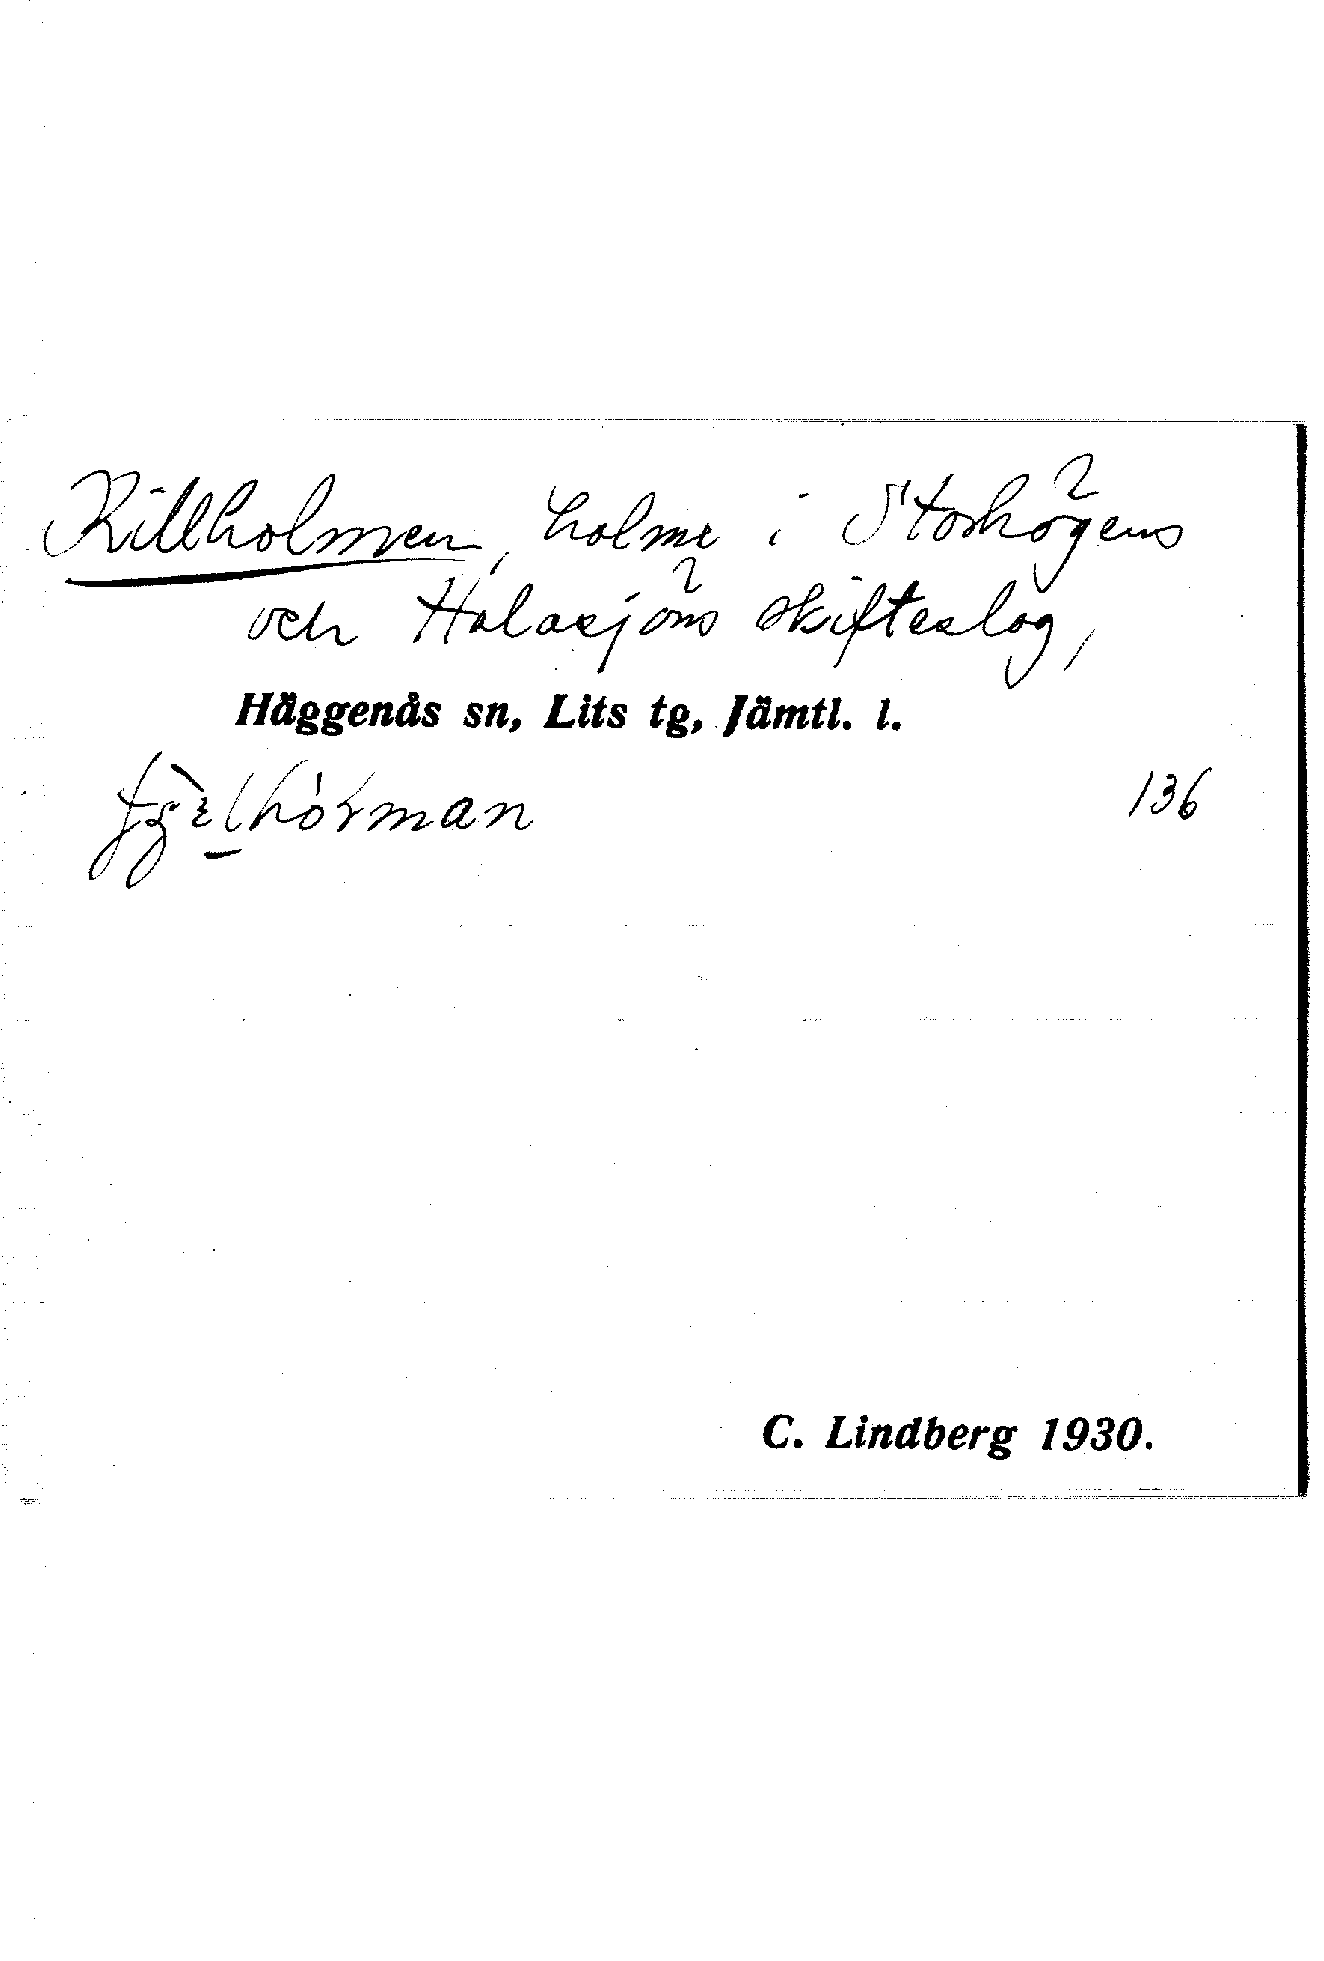 Killholmen, holme i Storhögens
och Halasjöns skifteslag,
Häggenås sn, Lits tg, Jämtl. l.
136
C. Lindberg 1930.